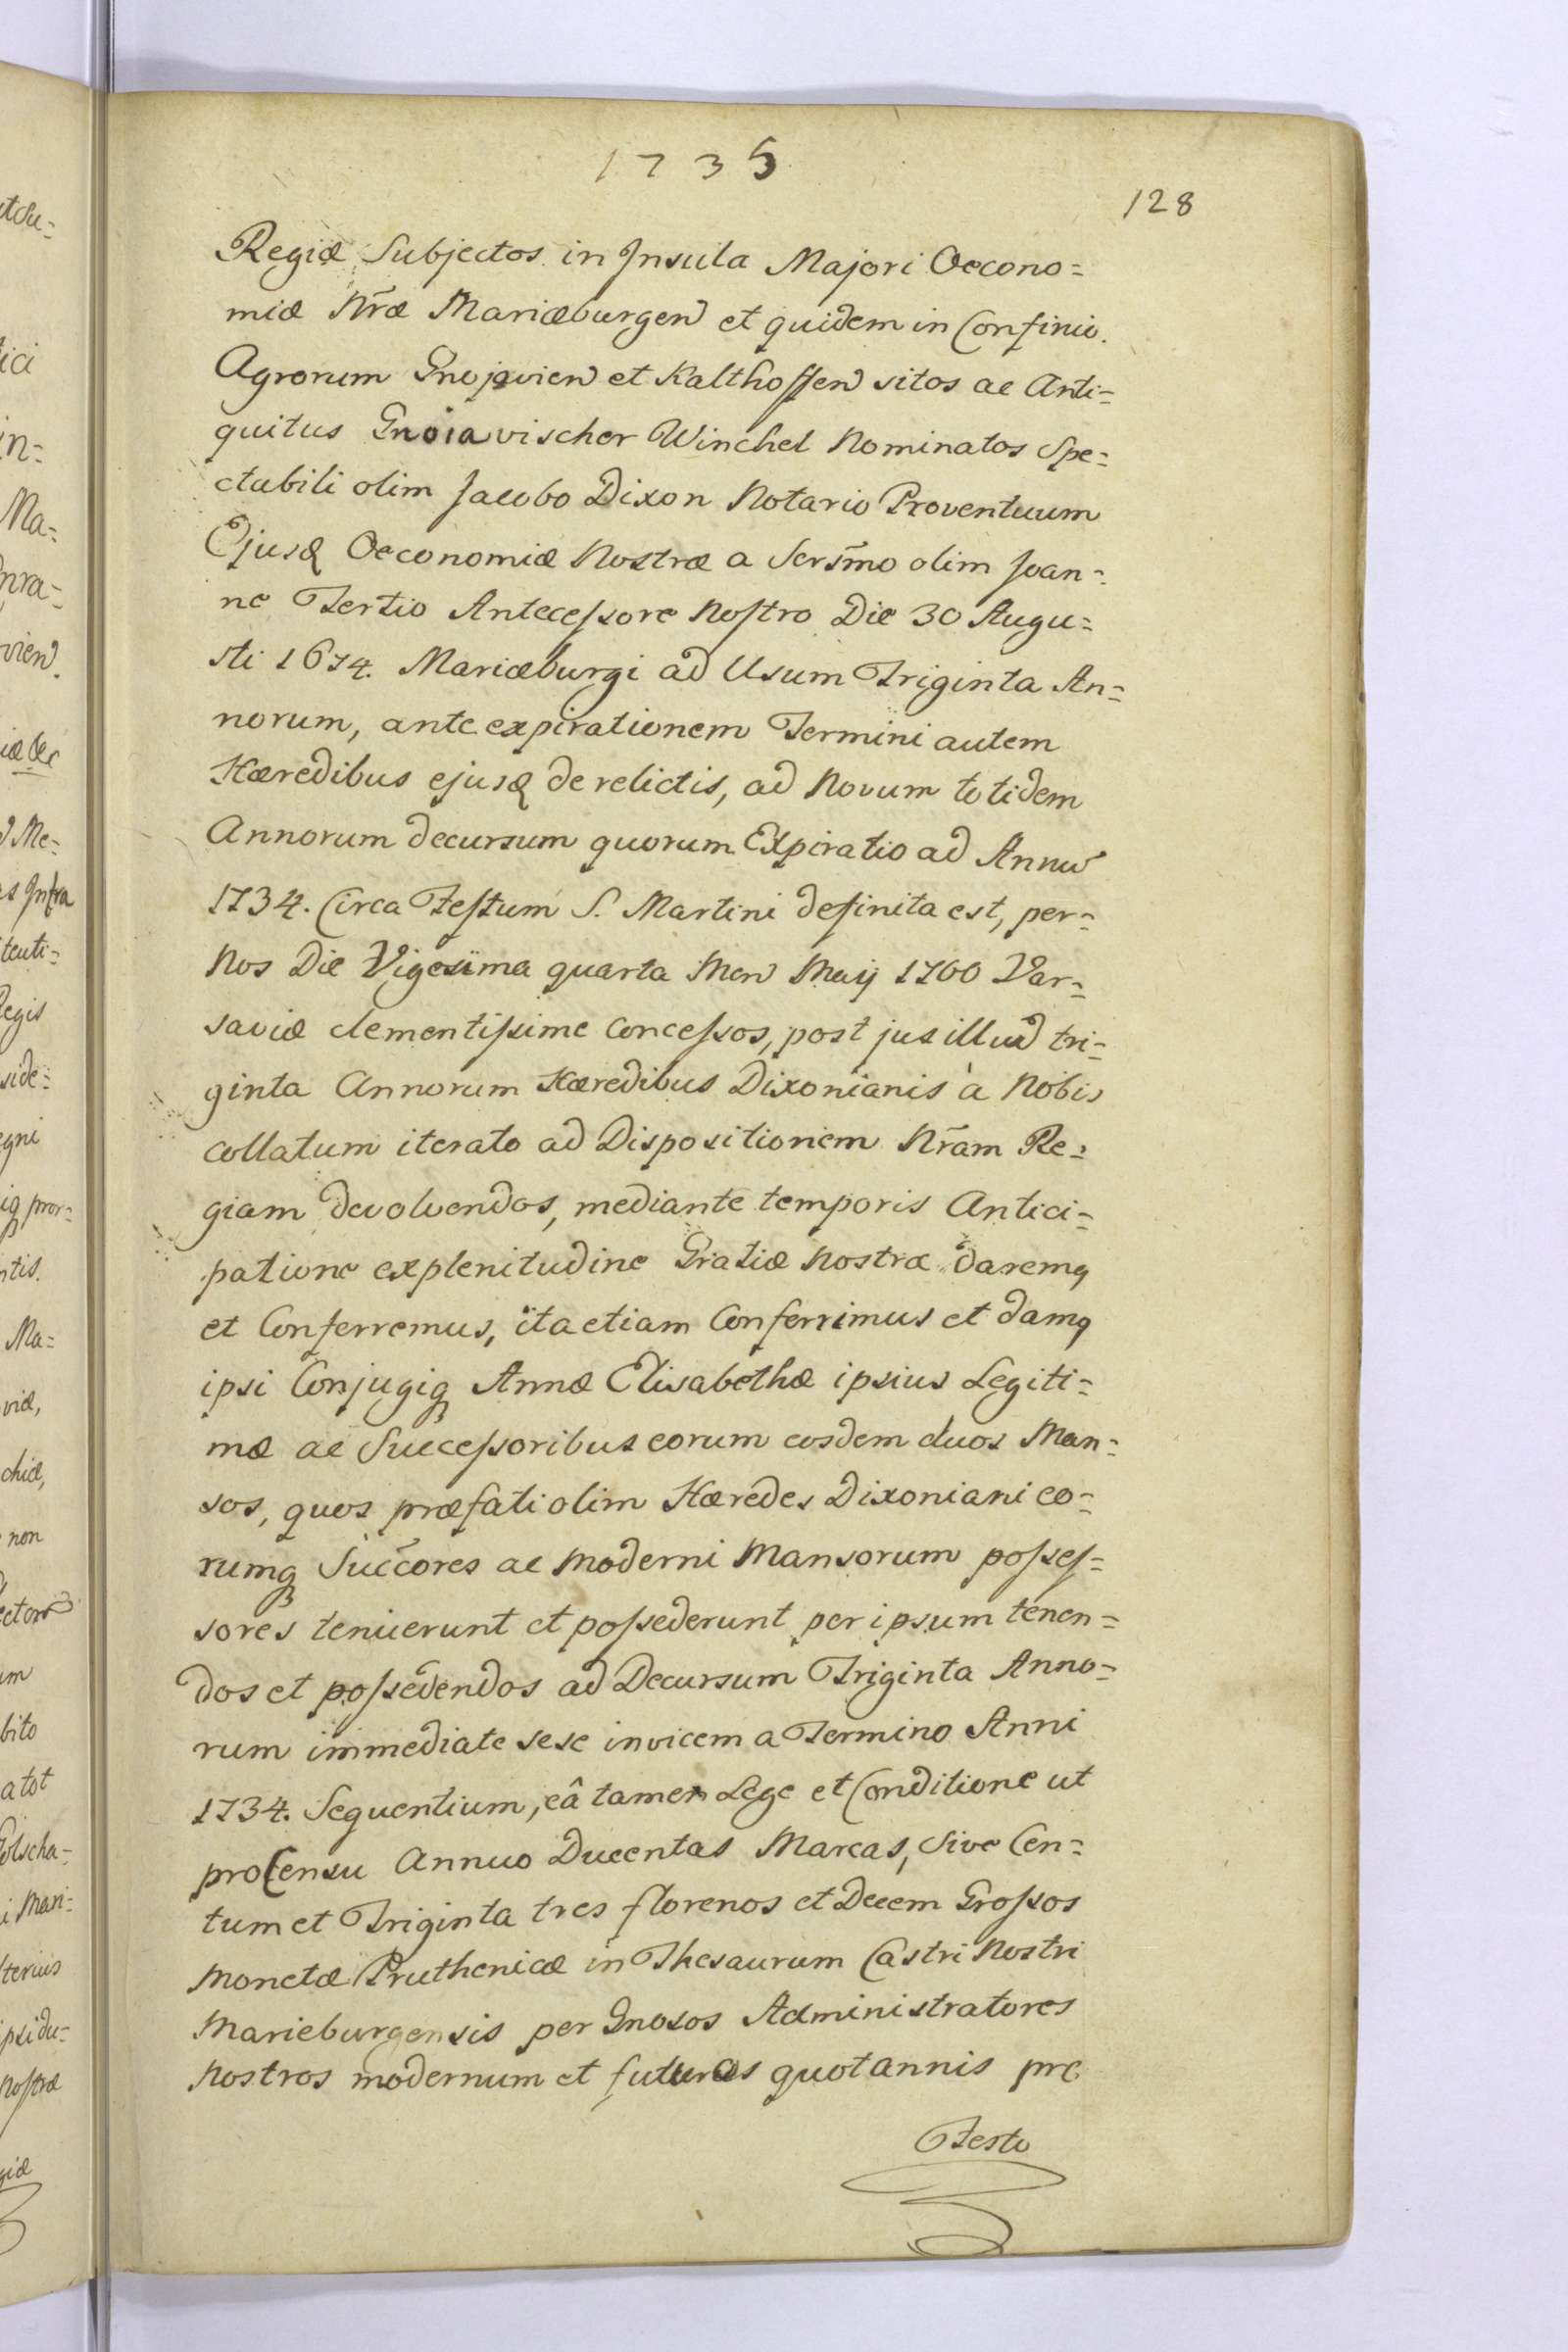 1735
128
Regiæ Subjectos in Insula Majori Oecono=
miæ Nr̄æ Mariæburgen et quidem in Confinio.
Agrorum Gnojavien et Kalthoffen sitos ac Anti=
quitus Gnoiavischer Winchel Nominatos Spe=
ctabili olim Jacobo Dixon Notario Proventuum
Ejusq Oeconomiæ Nostræ a Serm̄o olim Joan=
ne Tertio Antecessore Nostro Die 30 Augu=
sti 1674. Mariæburgi ad Usum Triginta An=
norum, ante expirationem Termini autem
Hæredibus ejusq derelictis, ad Novum totidem
Annorum decursum quorum Expiratio ad Annū
1734. Circa Festum S. Martini definita est, per=
Nos Die Vigesima quarta Men Maij 1700 Var=
saviæ clementissime Concessos, post jus illud tri=
ginta Annorum Hæredibus Dixonianis à Nobis
Collatum iterato ad Dispositionem Nr̄am Re=
giam devolvendos, mediante temporis Antici=
patione explenitudine Gratiæ Nostræ daremq
et Conferremus, ita etiam Conferrimus et damq
ipsi Conjugiq Annæ Elisabethæ ipsius Legiti=
mæ ac Successoribus eorum eosdem duos Man=
sos, quos præfati olim Hæredes Dixoniani eo=
rumq Succ̄ores ac Moderni Mansorum posses=
sores tenuerunt et possederunt per ipsum tenen=
dos et possedendos ad Decursum Triginta Anno=
rum immediate sese invicem a Termino Anni
1734. Sequentium, eâ tamen Lege et Conditione ut
pro Censu Annuo Ducentas Marcas, Sive Cen=
tum et Triginta tres florenos et Decem Grossos
Monetæ Pruthenicæ in Thesaurum Castri Nostri
Marieburgensis per Gnosos Administratores
Nostros modernum et futuros quotannis pro
Festo